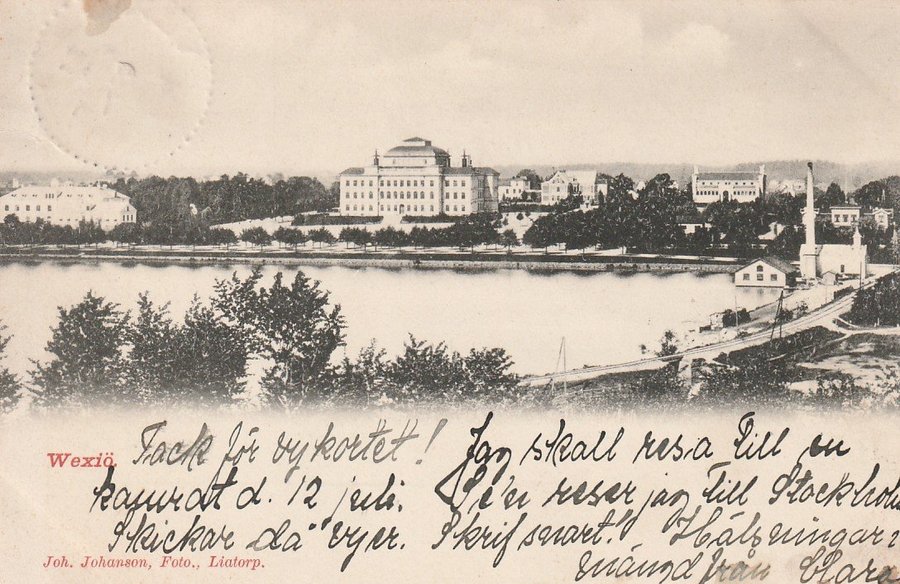 Wexiö.
Tack för vykortet! Jag skall resa till en
kamrat d. 12 juli. Se'n reser jag till Stockholm
Skickar då vyer. Skrif snart! Hälsningar i
mängd från Clara
Joh. Johanson, Foto., Liatorp.